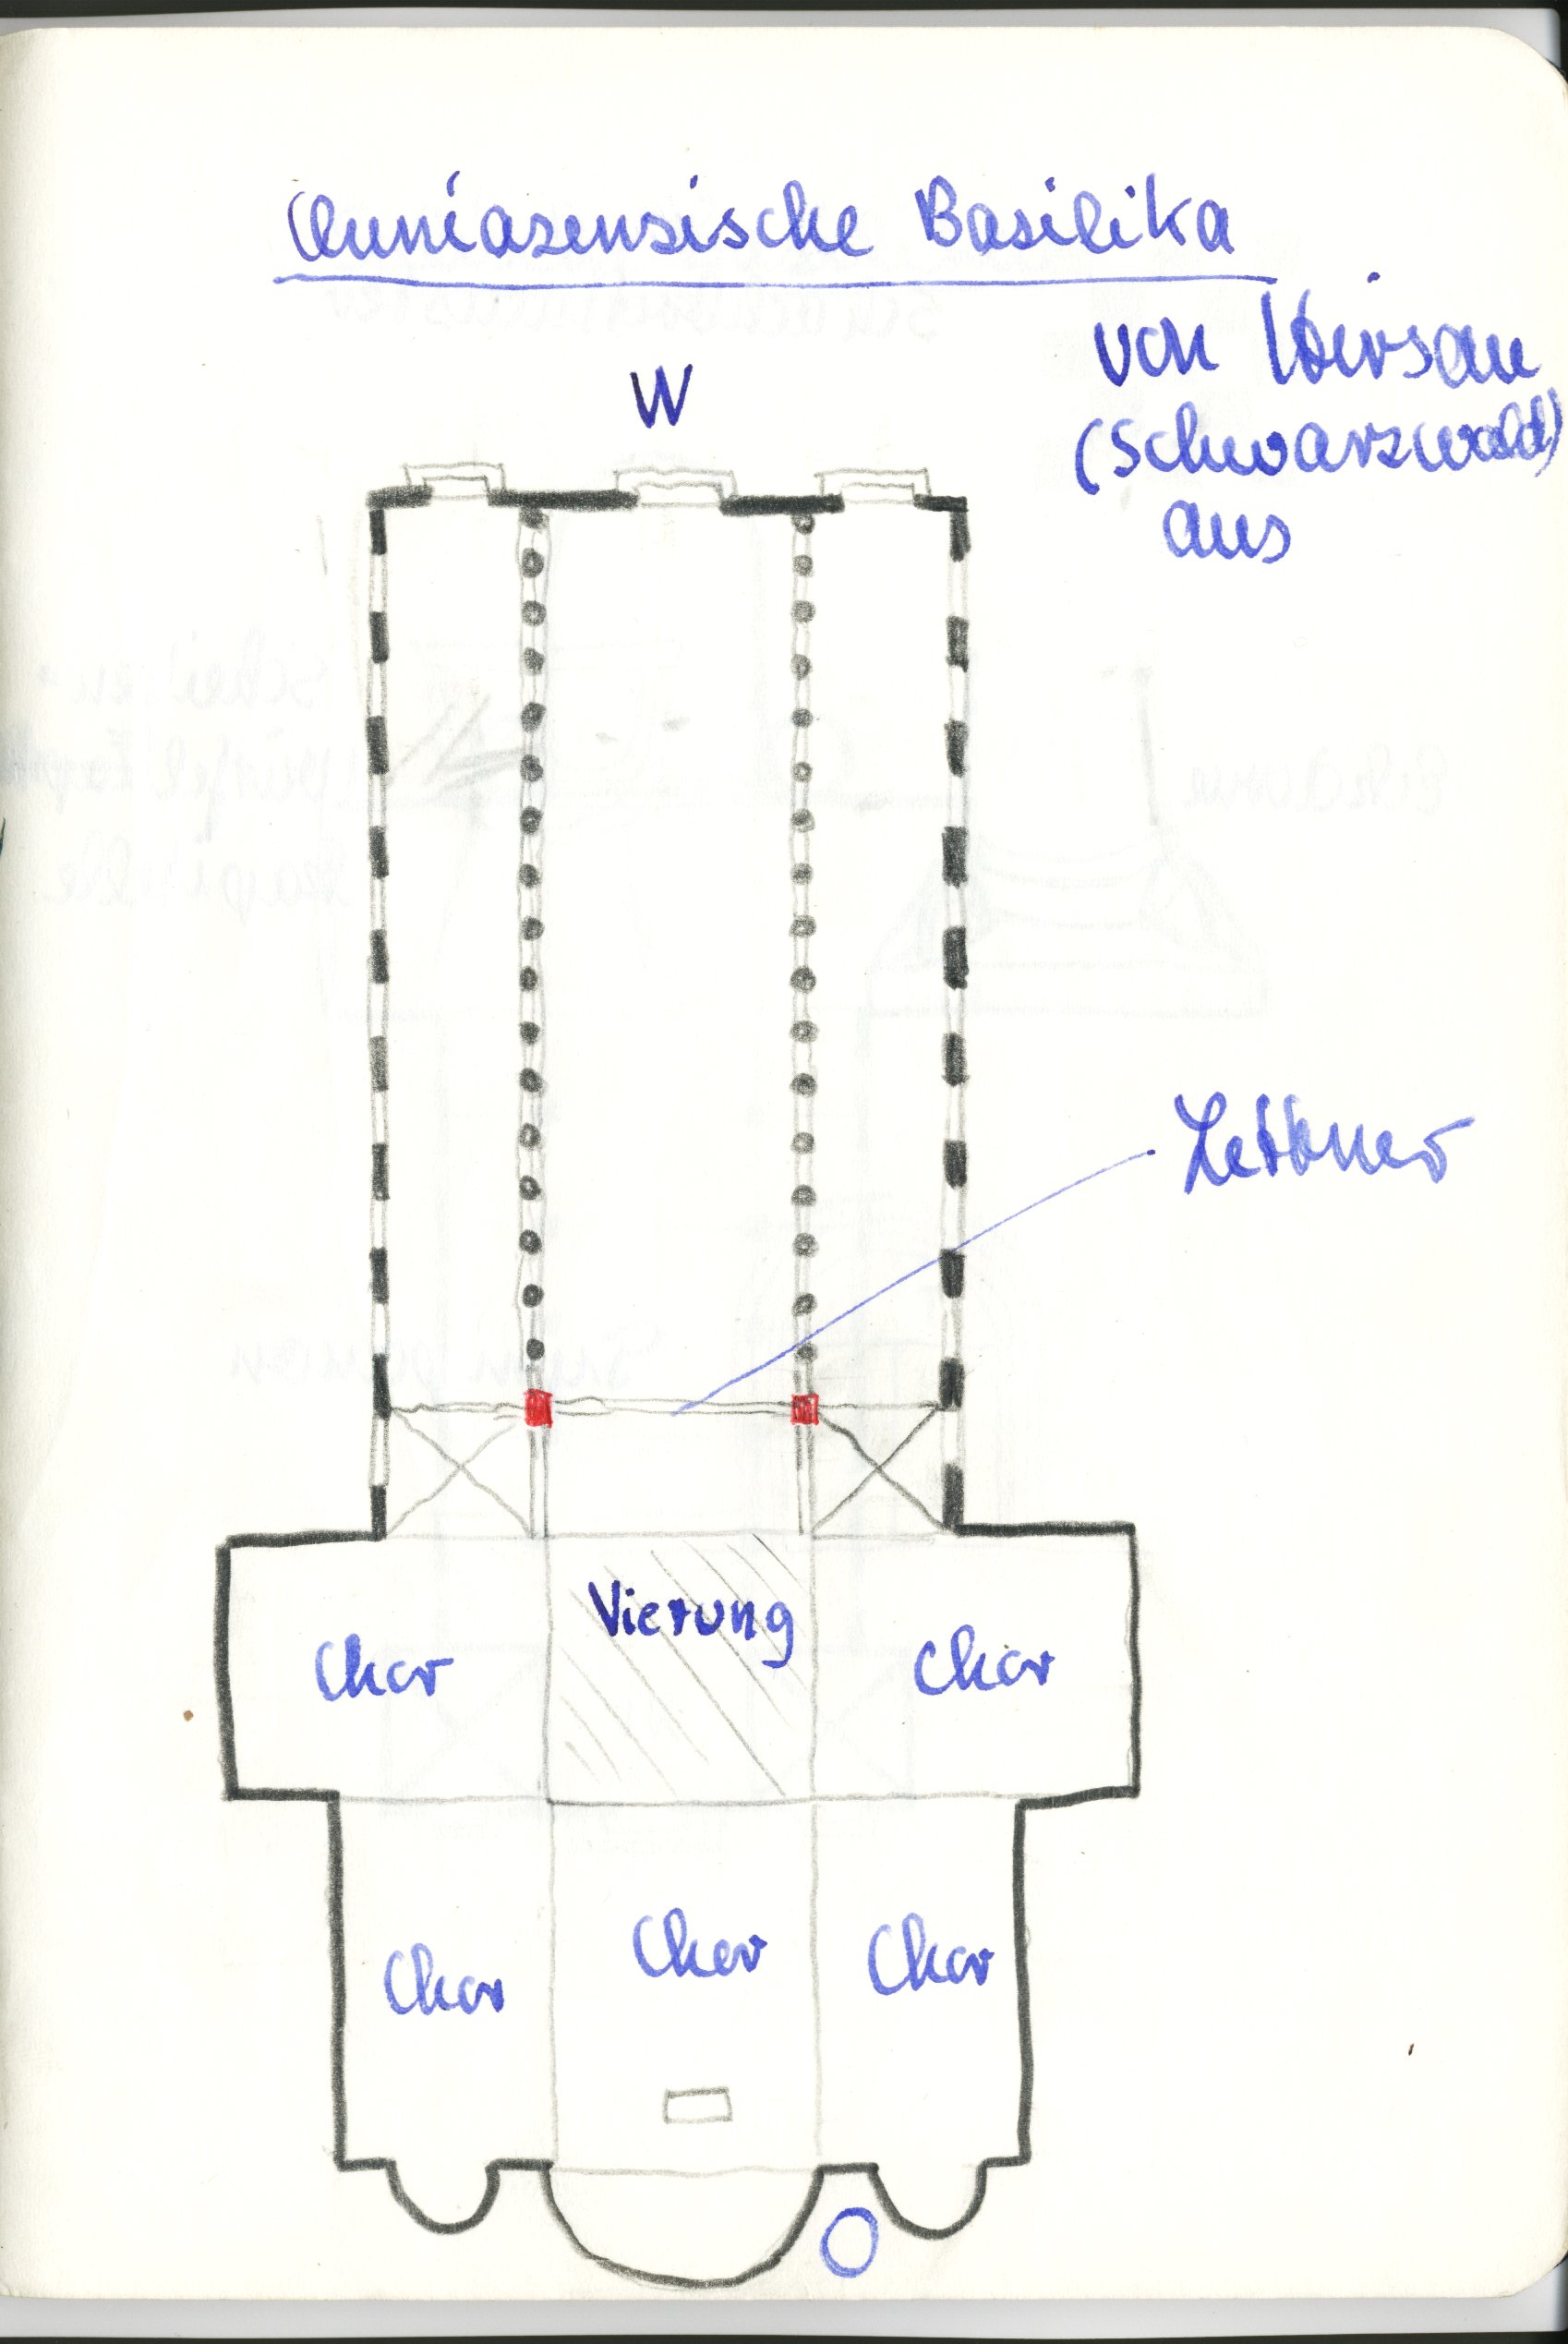 Cluniazensische Basilika
von Hirsau
(Schwarzwald)
aus
W
Lettner
Vierung
Chor
Chor
Chor
Chor
Chor
O